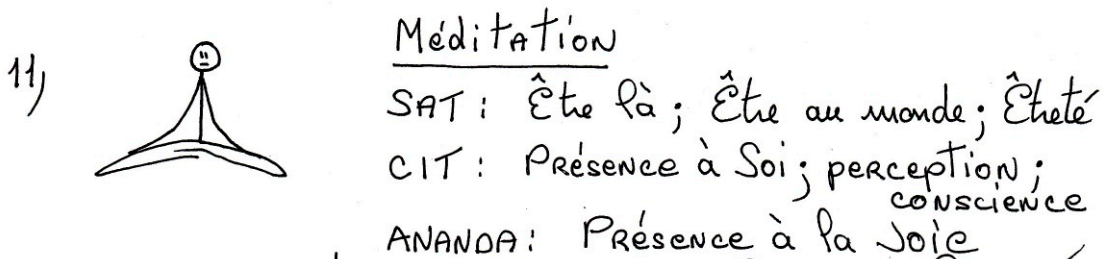 11)
Méditation
SAT : Être là ; Être au monde ; Êtreté
CIT : Présence à Soi ; perception ;
conscience
ANANDA : Présence à la Joie